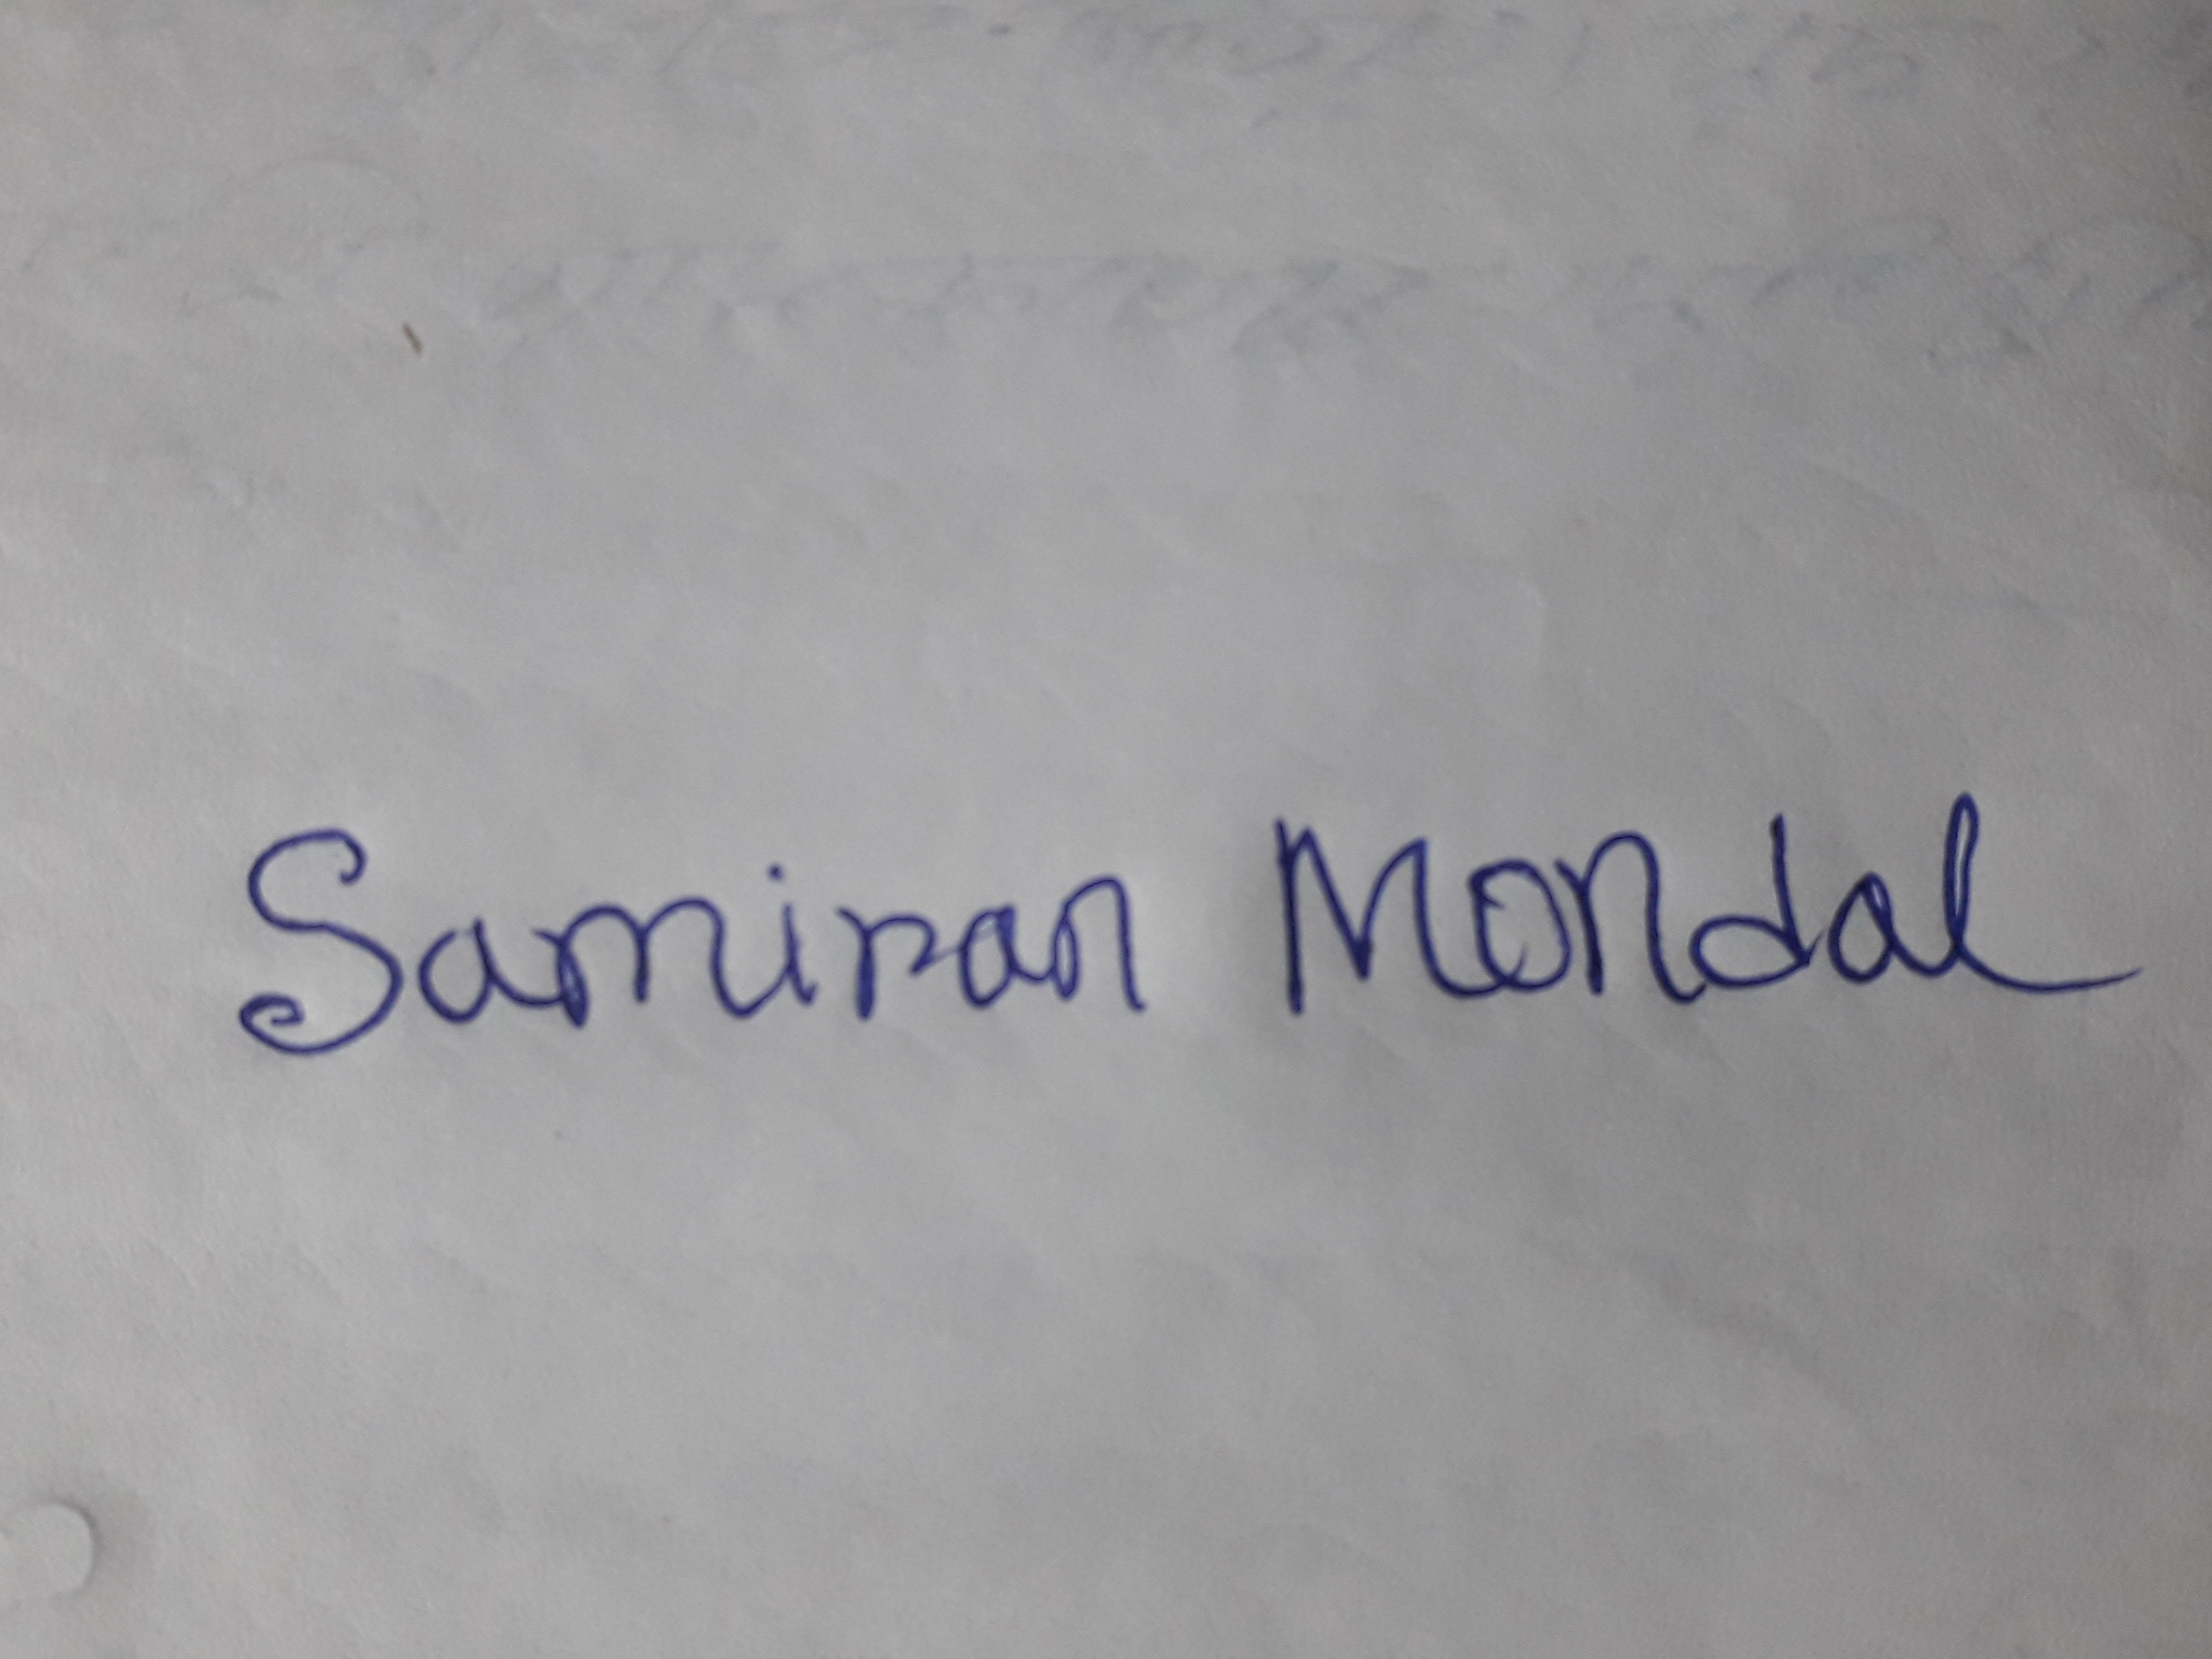 Samiran Mondal